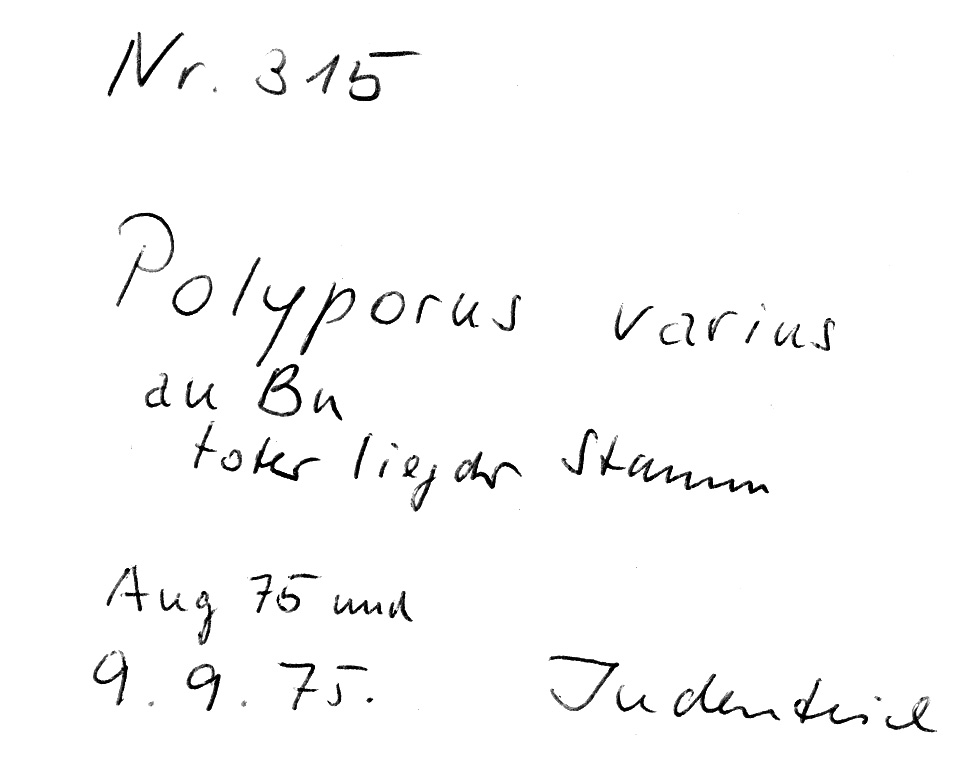 Nr. 315
Polyporus varius
an Bu
toter liegdr Stamm
Aug 75 und
9. 9. 75. Judenteich